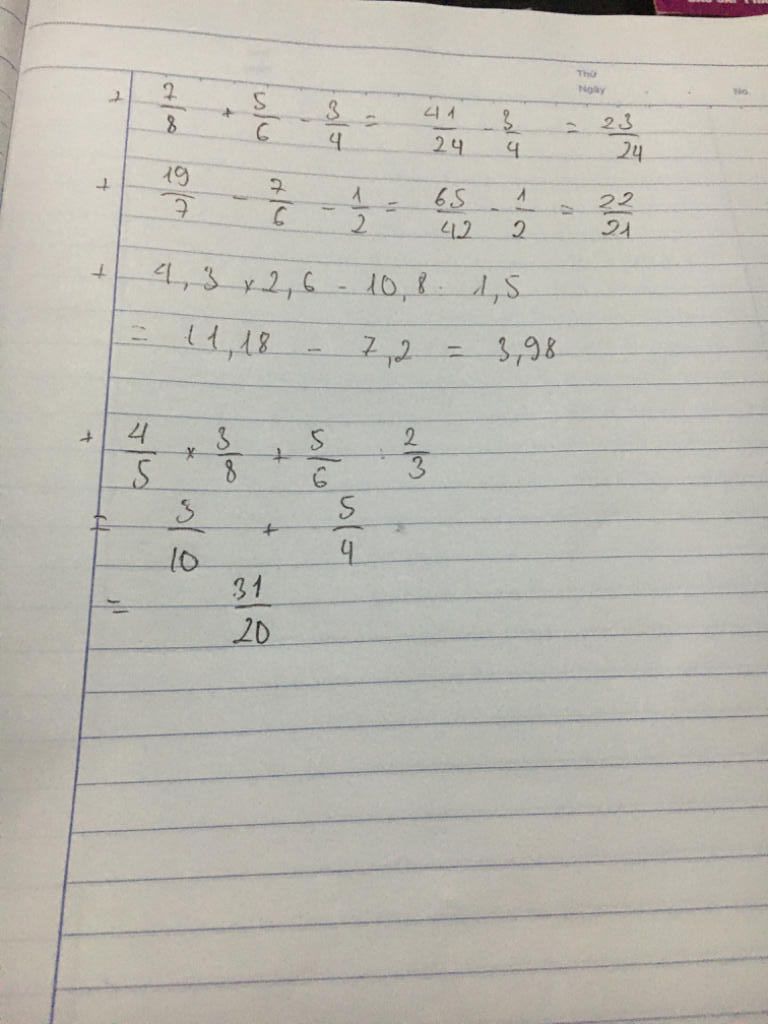 Thứ
Ngày No.
+ 7/8 + 5/6 - 3/4 = 41/24 - 3/4 = 23/24
+ 19/7 - 7/6 - 1/2 = 65/42 - 1/2 = 22/21
+ 4,3 x 2,6 - 10,8 : 1,5
= 11,18 - 7,2 = 3,98
+ 4/5 x 3/8 + 5/6 : 2/3
= 3/10 + 5/4
= 31/20